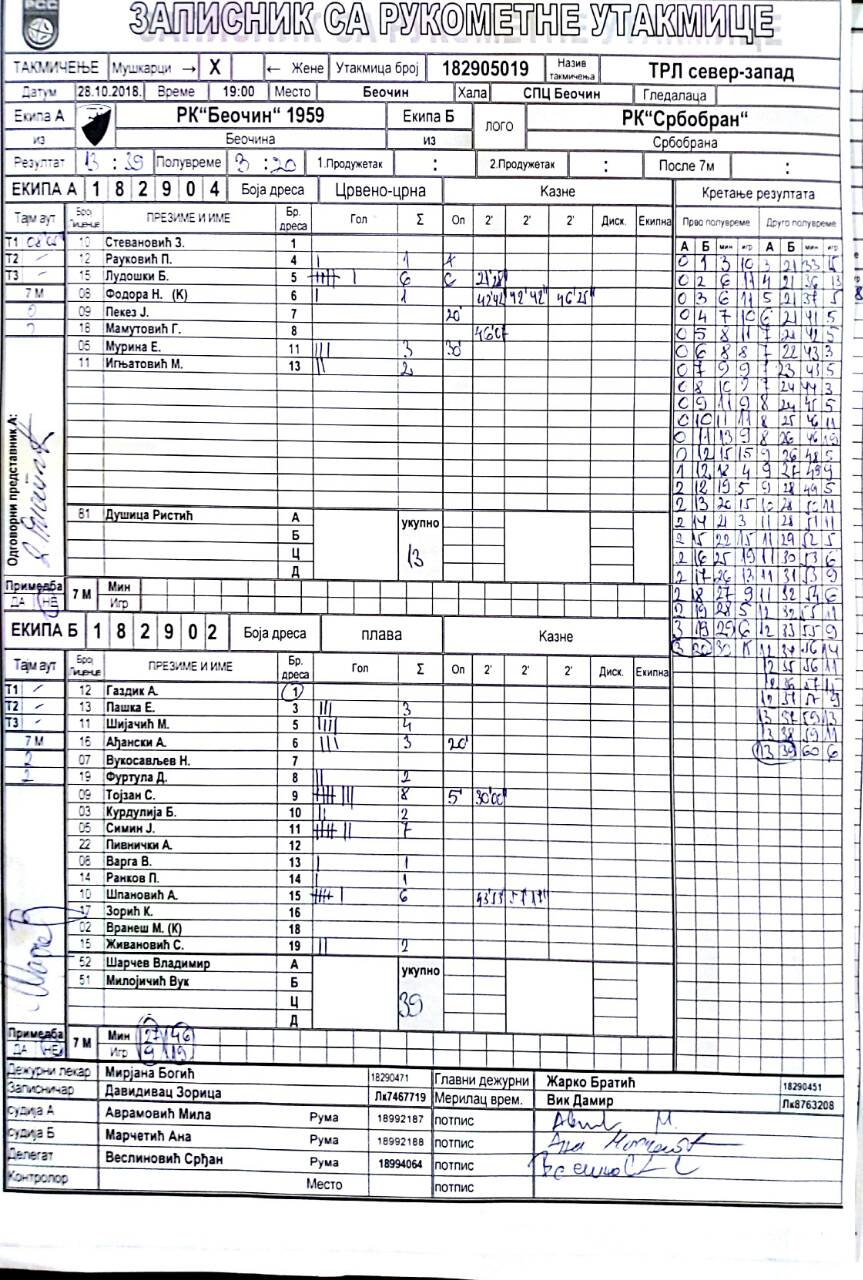 РСС
ЗАПИСНИК СА РУКОМЕТНЕ УТАКМИЦЕ
ТАКМИЧЕЊЕ Мушкарци → X ← Жене Утакмица број 182905019 Назив такмичења ТРЛ север-запад
Датум 28.10.2018. Време 19:00 Место Беочин Хала СПЦ Беочин Гледалаца
Екипа А РК"Беочин" 1959 Екипа Б ЛОГО РК"Србобран"
из Беочина из Србобрана
Резултат 13 : 39 Полувреме 3 : 20 1.Продужетак : 2.Продужетак : После 7м :
ЕКИПА А 1 8 2 9 0 4 Боја дреса Црвено-црна Казне Кретање резултата
Тајм аут Број Лиценце ПРЕЗИМЕ И ИМЕ Бр. дреса Гол Σ Оп 2' 2' 2' Диск. Екипна Прво полувреме Друго полувреме
А Б мин игр А Б мин игр
Т1 10 Стевановић З. 1
Т2 12 Рауковић П. 4 1
Т3 15 Лудошки Б. 5 6
7 М 08 Фодора Н. (К) 6 1 42'42" 42'42" 46'25"
09 Пекез Ј. 7 20'
18 Мамутовић Г. 8
05 Мурина Е. 11 3 30'
11 Игњатовић М. 13 2
Одговорни представник А:
81 Душица Ристић А укупно
Б
Ц 13
Д
Примедба ДА НЕ 7 М Мин
Игр
ЕКИПА Б 1 8 2 9 0 2 Боја дреса плава Казне
Тајм аут Број Лиценце ПРЕЗИМЕ И ИМЕ Бр. дреса Гол Σ Оп 2' 2' 2' Диск. Екипна
Т1 12 Газдик А. 1
Т2 13 Пашка Е. 3 3
Т3 11 Шијачић М. 5 4
7 М 16 Ађански А. 6 3 20'
2 07 Вукосављев Н. 7
2 19 Фуртула Д. 8 2
09 Тојзан С. 9 8 5' 30'00"
03 Курдулија Б. 10 2
05 Симин Ј. 11 7
22 Пивнички А. 12
08 Варга В. 13 1
14 Ранков П. 14 1
10 Шпановић А. 15 6
17 Зорић К. 16
02 Вранеш М. (К) 18
15 Живановић С. 19 2
52 Шарчев Владимир А укупно
51 Милојичић Вук Б
Ц 39
Д
Примедба ДА НЕ 7 М Мин 27 46
Игр 9 19
0 1 3 10 3 21 33 5
0 2 6 11 4 21 36 13
0 3 6 11 5 21 37 5
0 4 7 10 6 21 41 5
0 5 8 11 7 21 42 5
0 6 8 8 7 22 43 3
0 7 9 9 7 23 43 5
0 8 10 7 7 24 44 3
0 9 11 9 8 24 45 5
0 10 11 11 8 25 46 11
0 11 13 9 8 26 46 19
0 12 15 15 9 26 48 5
1 12 18 4 9 27 49 9
2 12 19 5 9 28 49 5
2 13 20 15 10 28 50 11
2 14 21 3 11 28 51 11
2 15 22 15 11 29 52 5
2 16 25 19 11 30 53 6
2 17 26 13 11 31 53 9
2 18 27 9 11 32 54 6
2 19 28 5 12 32 55 11
3 19 29 6 12 33 55 9
3 20 30 12 34 56 14
12 35 56 11
12 36 57
12 37 57 9
13 37 59 13
13 38 59 11
13 39 60 6
Дежурни лекар Мирјана Богић 18290471 Главни дежурни Жарко Братић 18290451
Записничар Давидивац Зорица Лк7467719 Мерилац врем. Вик Дамир Лк8763208
Судија А Аврамовић Мила Рума 18992187 потпис
Судија Б Марчетић Ана Рума 18992188 потпис
Делегат Веслиновић Срђан Рума 18994064 потпис
Контролор Место потпис